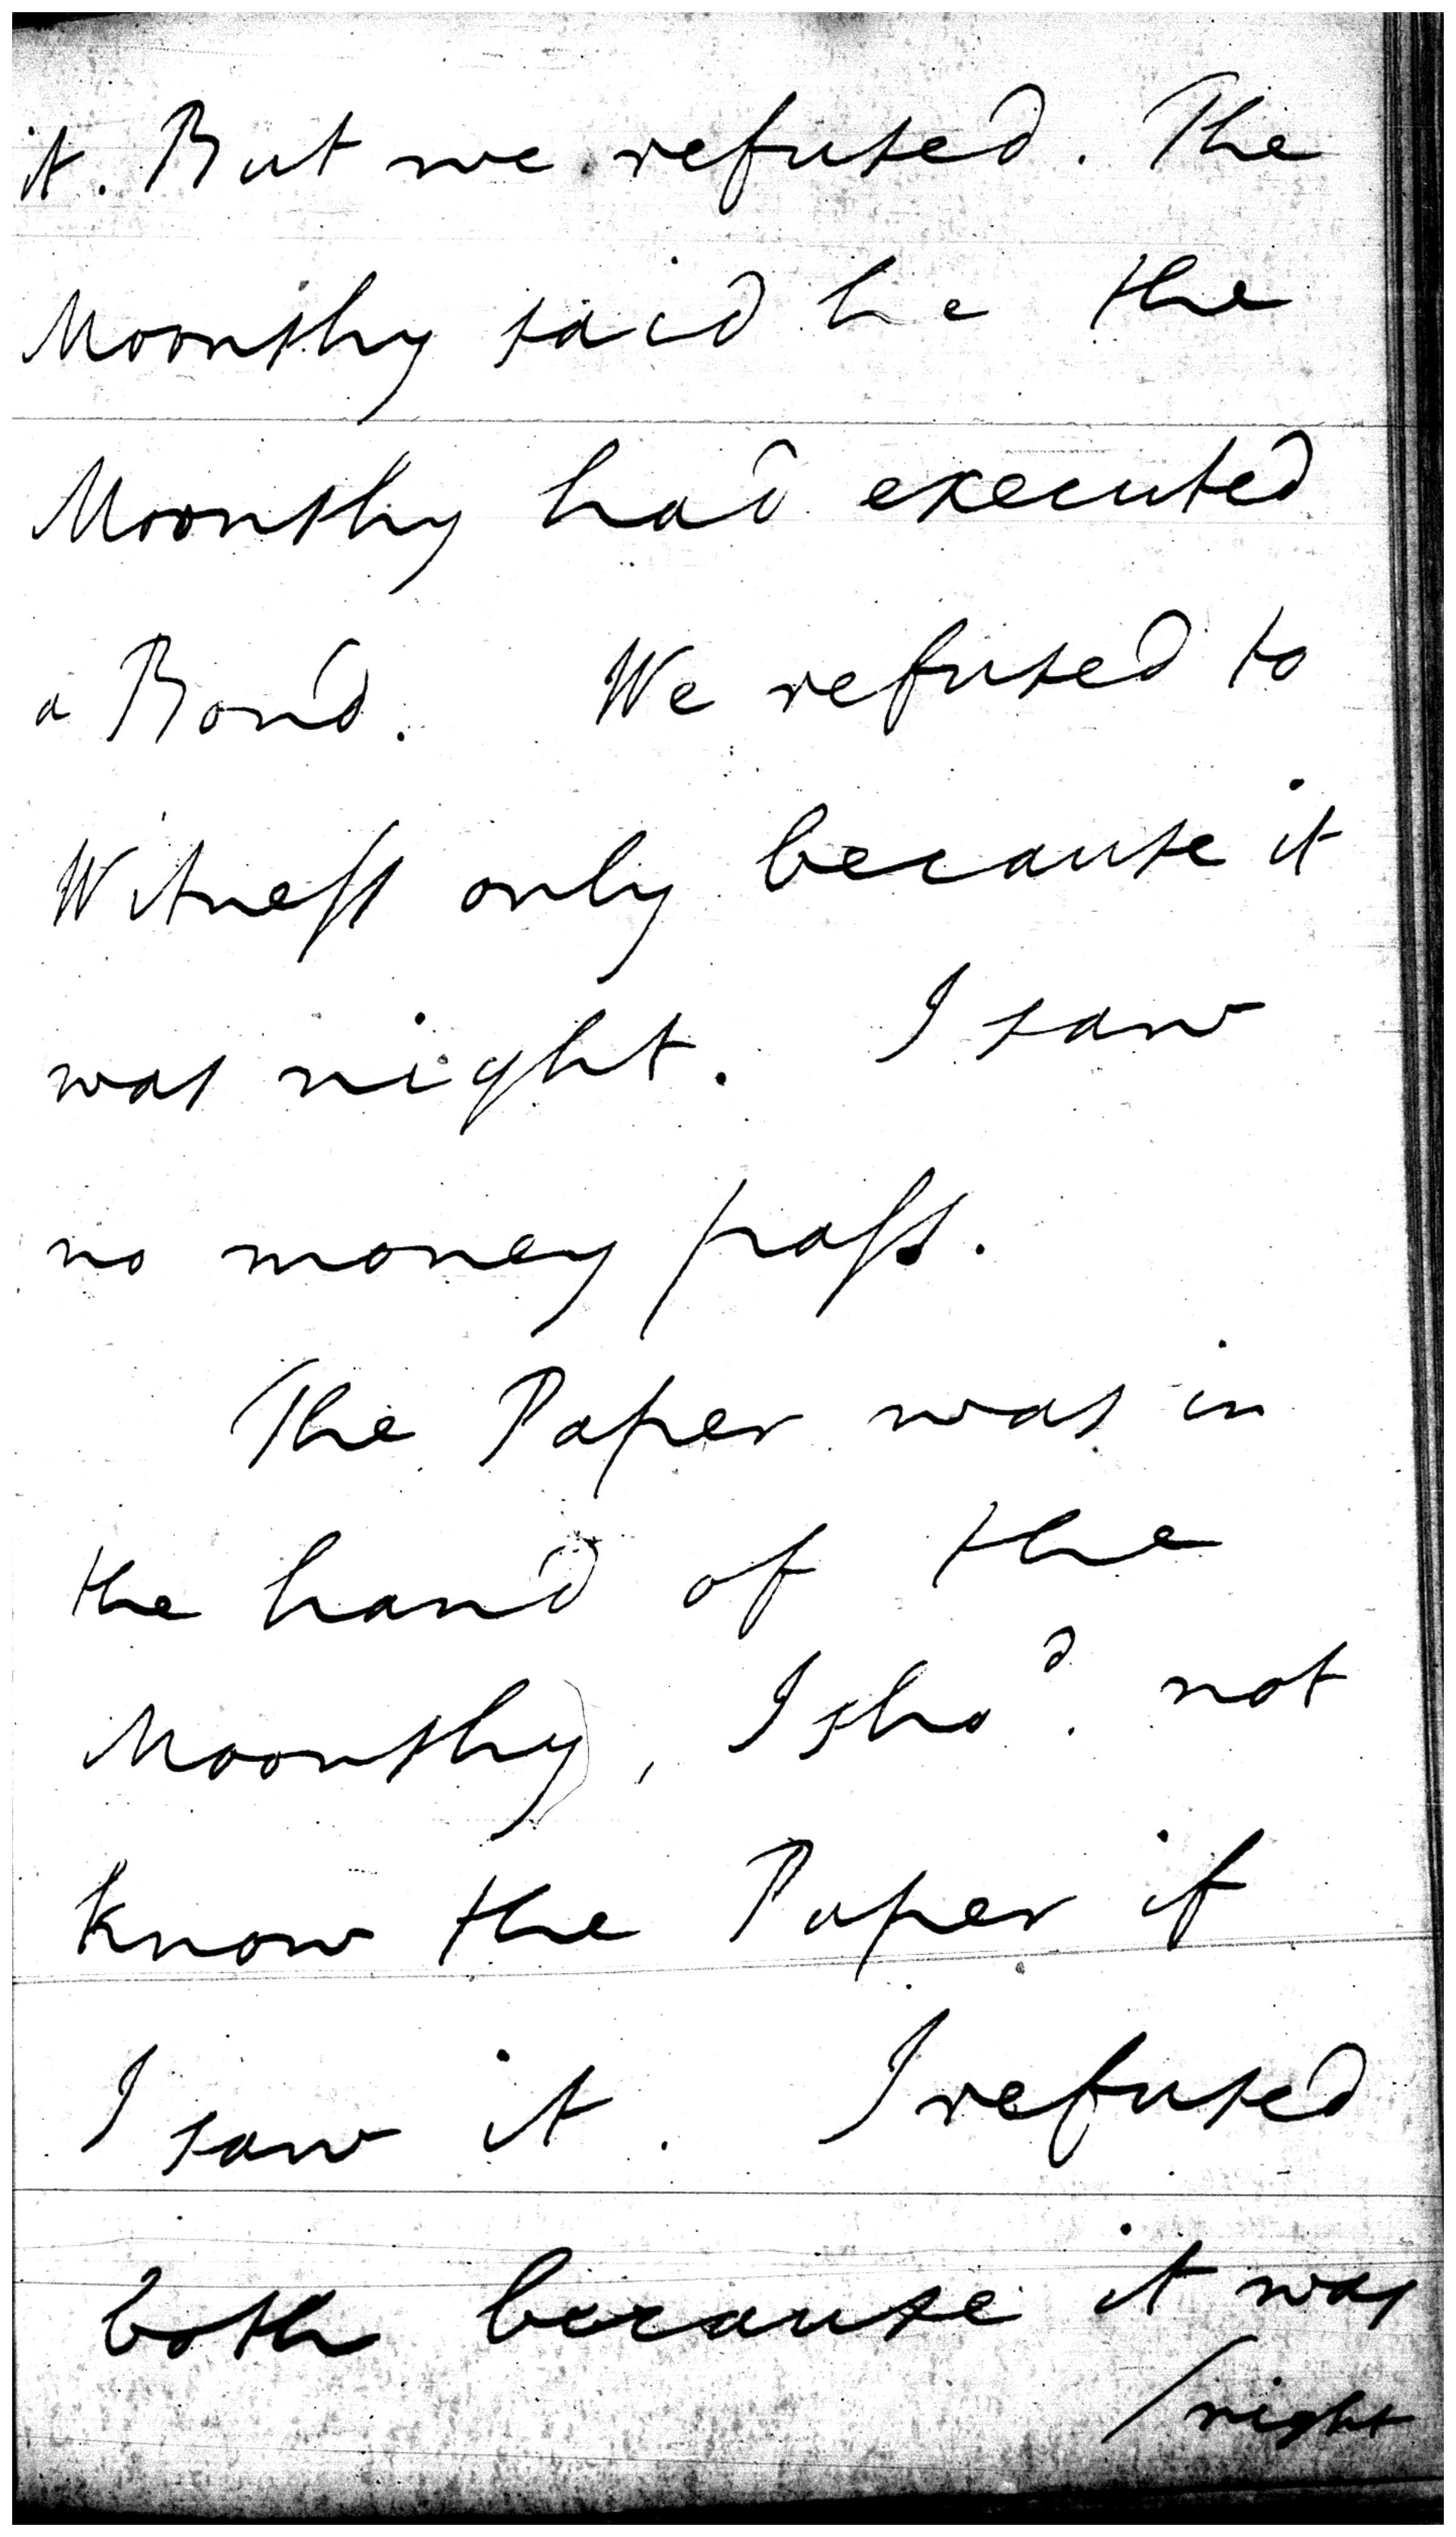 it. But we refused. The
Moonshy said he the
Moonshy had executed
a Bond. We refused to
Witness only because it
was night. I saw
no money pass.
The Paper was in
the hand of the
Moonshy, I sho^d. not
know the Paper if
I saw it. I refused
both because it was
/night